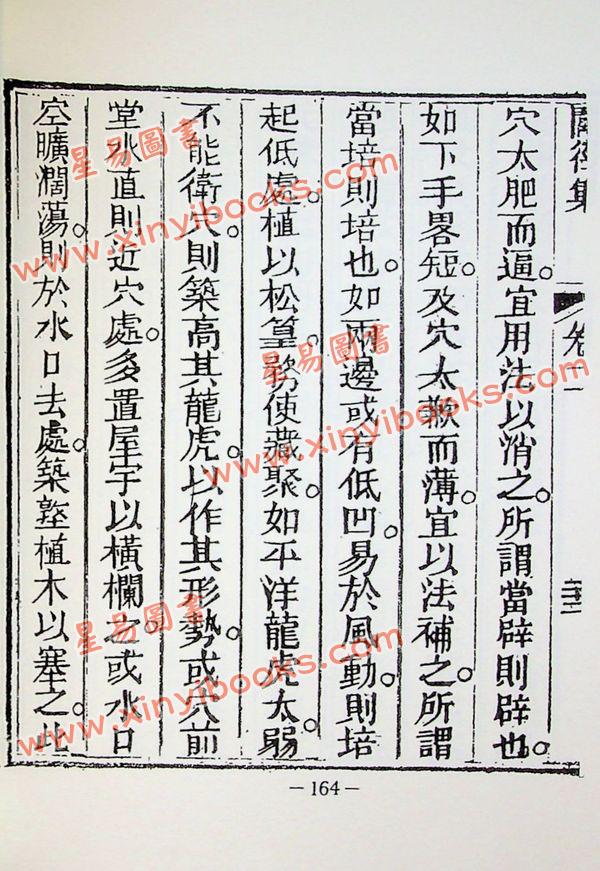 穴太肥而逼。宜用法以消之。所謂當辟則辟也。
如下手畧短。及穴太歉而薄。宜以法補之。所謂
當培則培也。如兩邊或有低凹。易於風動。則培
起低處。植以松篁。務使藏聚。如平洋龍虎太弱。
不能衛穴。則築高其龍虎。以作其形勢。或穴前
堂水直則近穴處。多置屋宇以橫欄之。或水口
空曠濶蕩。則於水口去處。築墪植木以塞之。此
卷一
- 164 -
星易圖書
www.xinyibooks.com
星易圖書
www.xinyibooks.com
星易圖書
www.xinyibooks.com